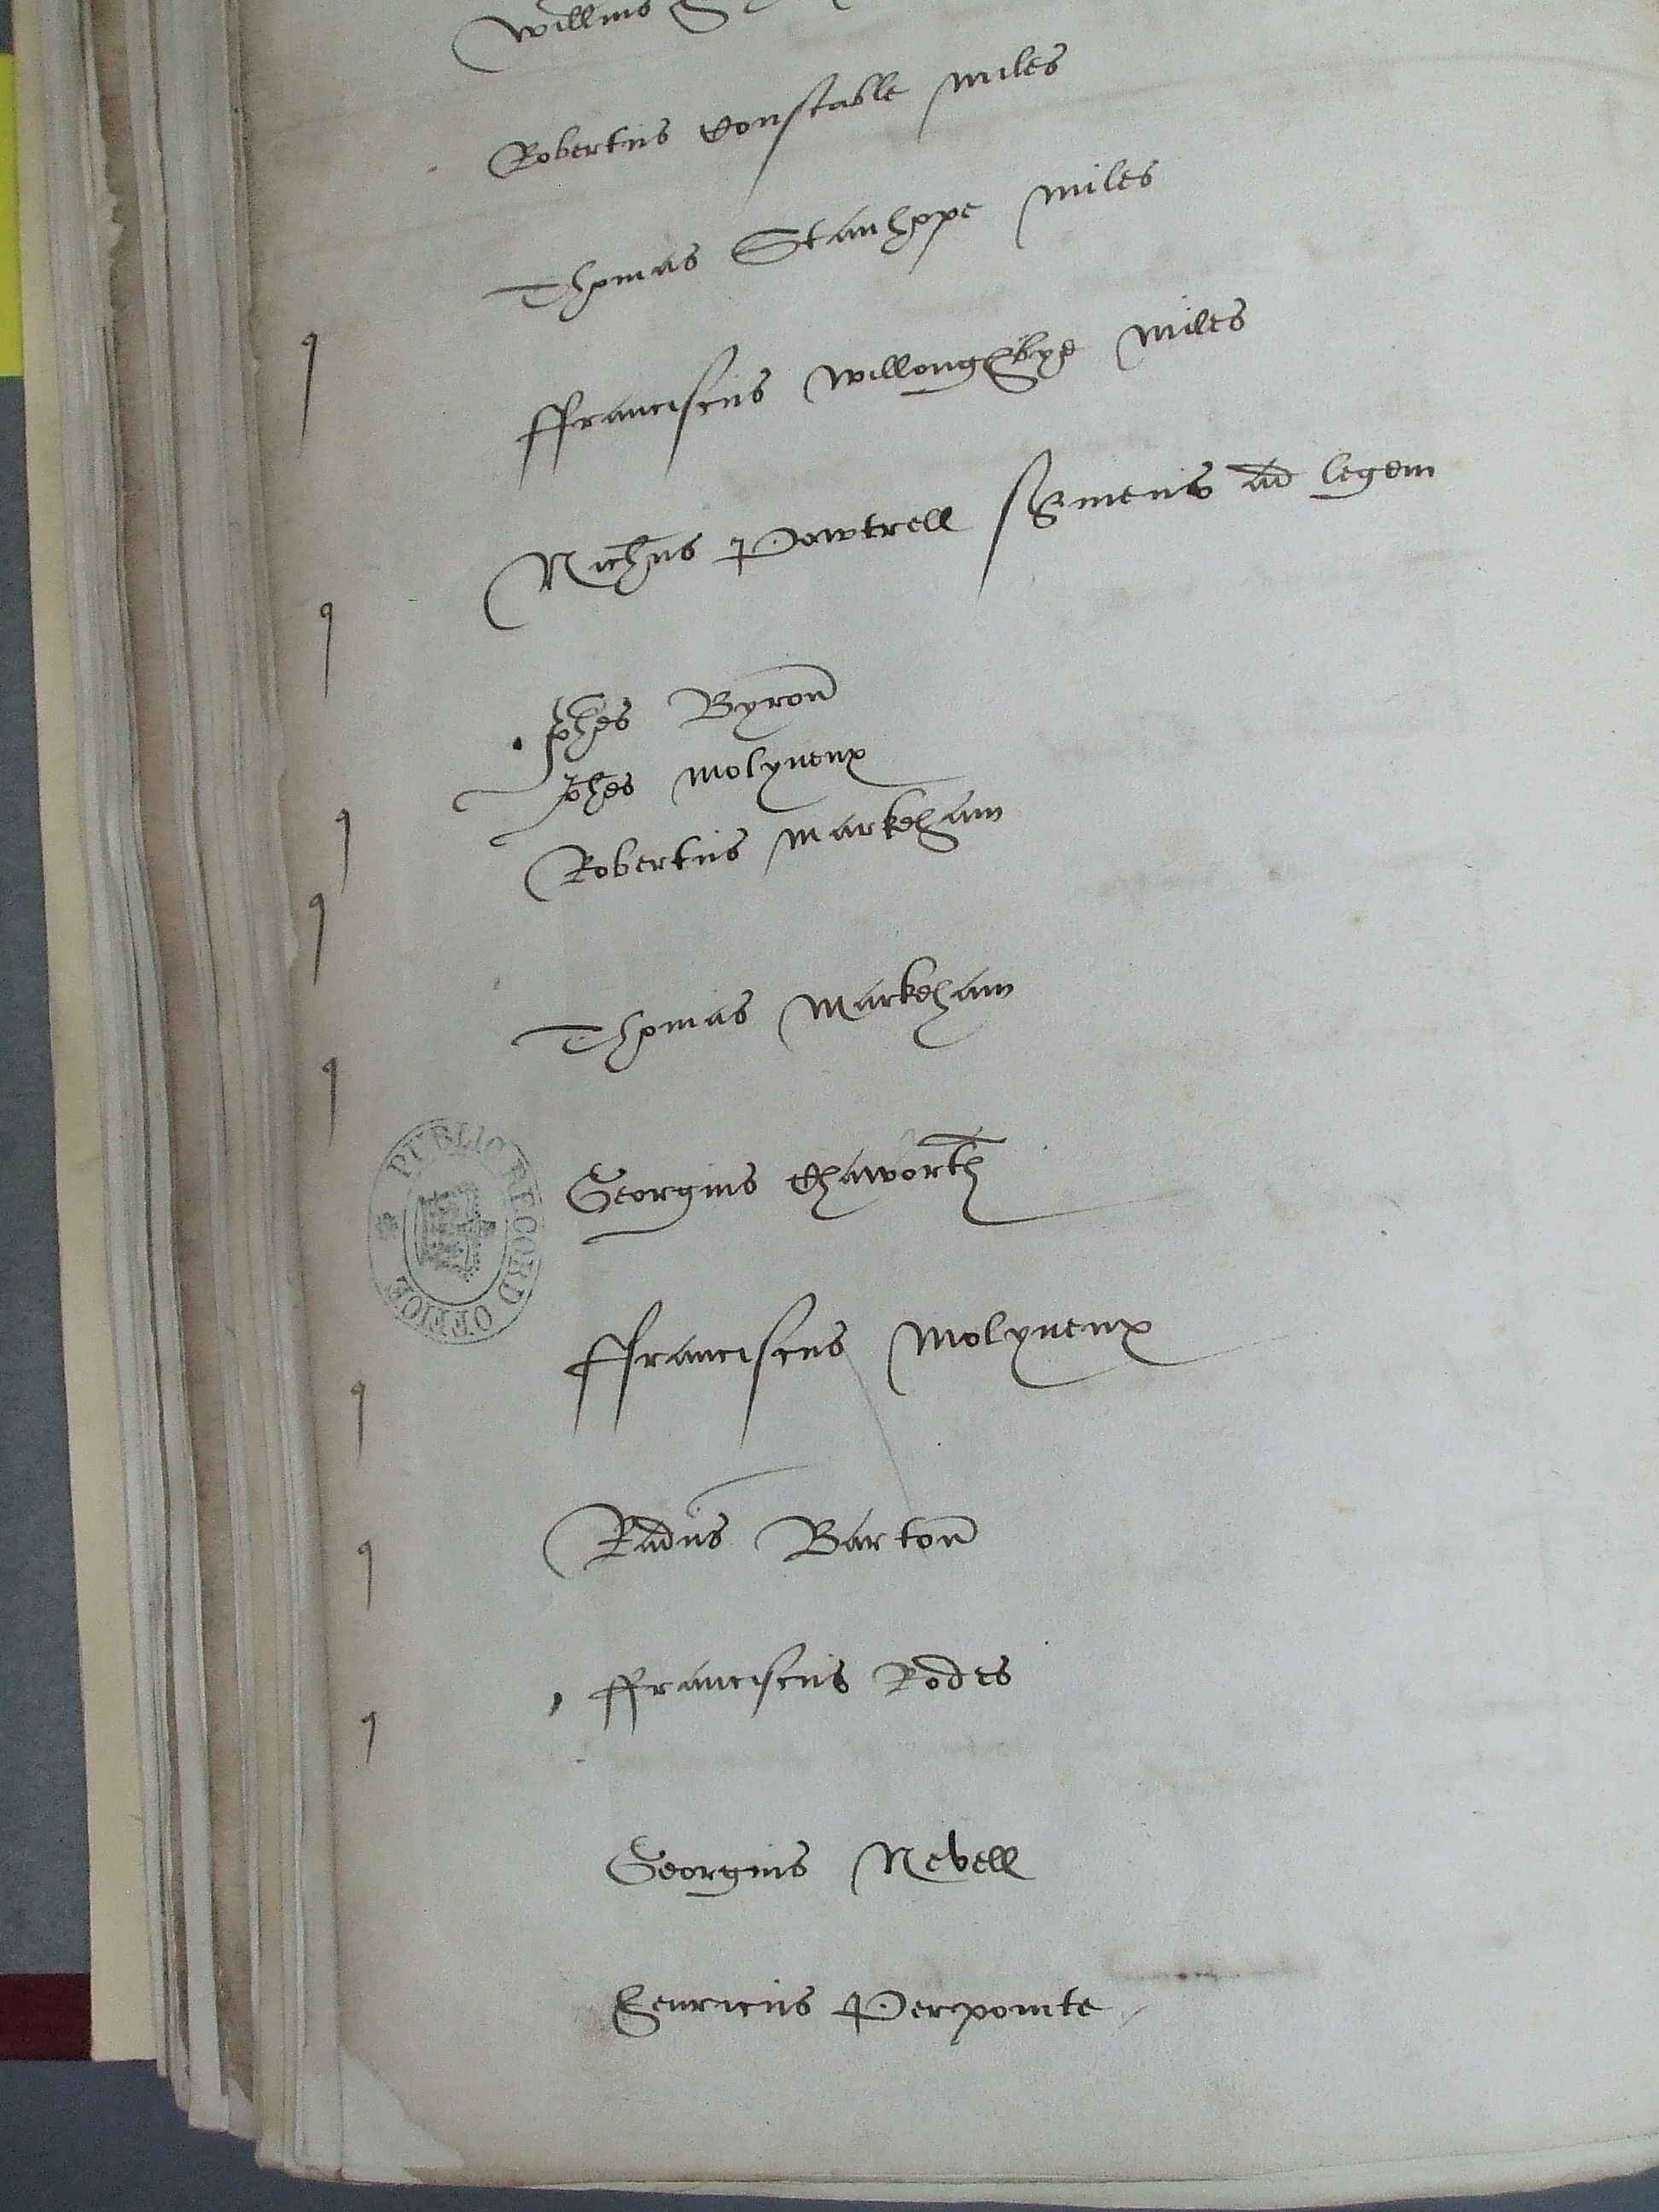 Willms
Robertus Constable miles
Thomas Stanhope miles
ffranciscus Willoughbye miles
Nichus Powtrell s'viens ad legem
Johes Byron
Johes Molyneux
Robertus Markeham
Thomas Markeham
Georgius Chaworth
PUBLIC RECORD OFFICE
ffranciscus Molyneux
Radus Barton
ffranciscus Rodes
Georgius Nevell
Henricus Perpointe